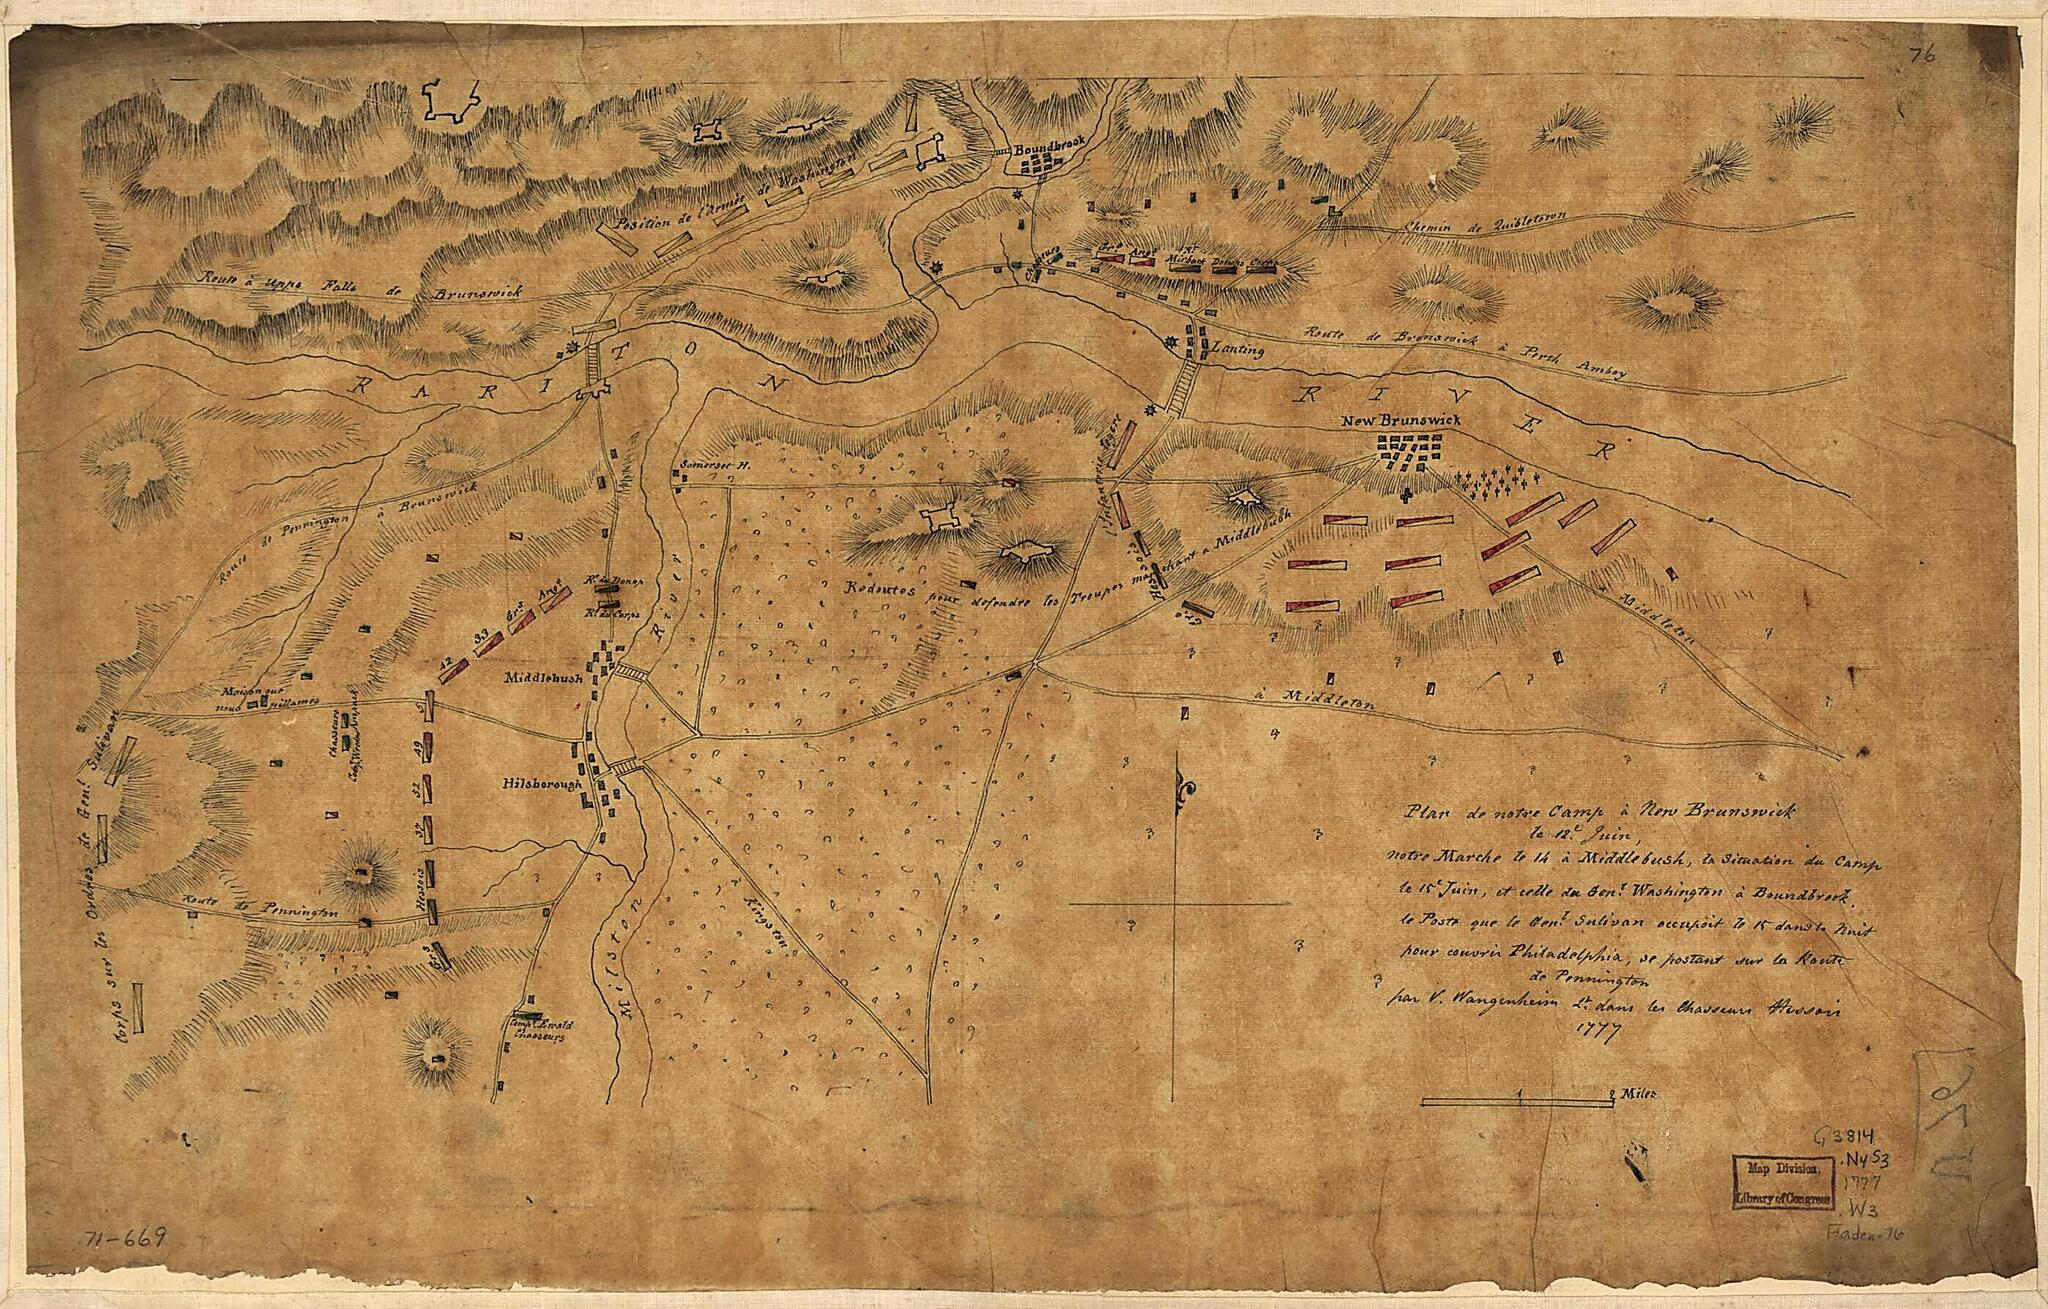 76
Boundbrook
Position de l'Armée de Washington
Chemin de Quibletown
Grs
Angs
Rt
Mirbach
Donops
Corps
Chasseurs
Route à Upps Falls de Brunswick
Route de Brunswick à Perth Amboy
Lanting
RARITON RIVER
New Brunswick
Infanterie légere
Somerset H.
Route de Pennington à Brunswick
Hessois
Grs
Redoutes pour defendre les Troupes marchant a Middlebush
Rt de Donop
Rt du Corps
Angs
Grs
33
42
Middleton
River
Middlebush
Maison que
nous pillames
à Middleton
5
49
52
37
Hessois
Grs
Chasseurs
Hilsborough
Corps sur les Ordres de Genl Sulivan
Route de Pennington
à Kingston
Milston
Compe Ewald
Chasseurs
Plan de notre Camp à New Brunswick
le 12e Juin,
notre Marche le 14 à Middlebush, la Situation du Camp
le 15e Juin, et celle du Genl Washington à Boundbrook.
le Poste que le Genl Sulivan occupoit le 15 dans la Nuit
pour couvrir Philadelphia, se postant sur la Route
de Pennington
par V. Wangenheim Lt dans les Chasseurs Hessois
1777
1 2 Miles
G3814
.N4S3
1777
.W3
Faden 76
Map Division,
Library of Congress
71-669